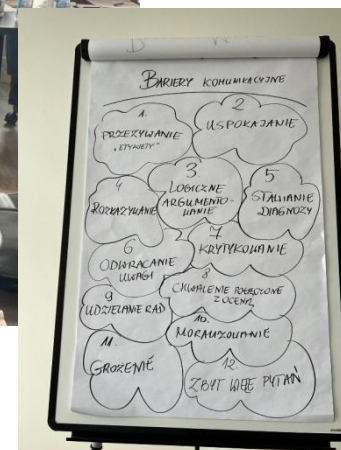 BARIERY KOMUNIKACYJNE
1.
PRZEZYWANIE
„ETYKIETY"
2
USPOKAJANIE
3.
LOGICZNE
ARGUMENTO-
WANIE
4
ROZKAZYWANIE
5
STAWIANIE
DIAGNOZY
6
ODWRACANIE
UWAGI
7
KRYTYKOWANIE
8
CHWALENIE POŁĄCZONE
Z OCENĄ
9
UDZIELANIE RAD
10.
MORALIZOWANIE
11.
GROŻENIE
12.
ZBYT WIELE PYTAŃ